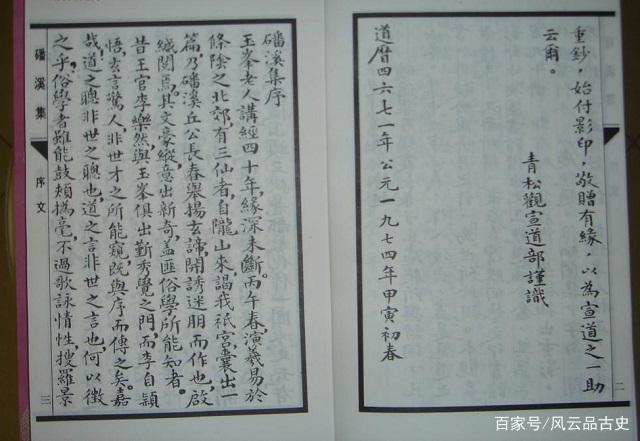 重鈔，始付影印，敬贈有緣，以為宣道之一助
云爾。
青松觀宣道部謹識
道曆四六七一年公元一九七四年甲寅初春
二
磻溪集序
玉峯老人講經四十年，緣深未斷。丙午春，演羲易於
條陰之北郊，有三仙者，自隴山來，謁我祇宮，囊出一
篇，乃磻溪丘公長春舉揚玄諦，開誘迷朋而作也，啟
緘閱焉，其文豪縱，意出新奇，蓋匪俗學所能知者。
昔王官李樂然與玉峯俱出勤秀覺之門，而李自穎
悟，玄言驚人，非世才之所能窺，既與序而傳之矣。嘉
哉，道之聰非世之聰也，道之言非世之言也，何以徵
之乎，俗學者雖能鼓頰撝毫，不過歌詠情性，搜羅景
磻溪集
序文
三
百家号/风云品古史